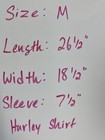 Size: M
Length: 26½"
Width: 18½"
Sleeve: 7½"
Harley Shirt